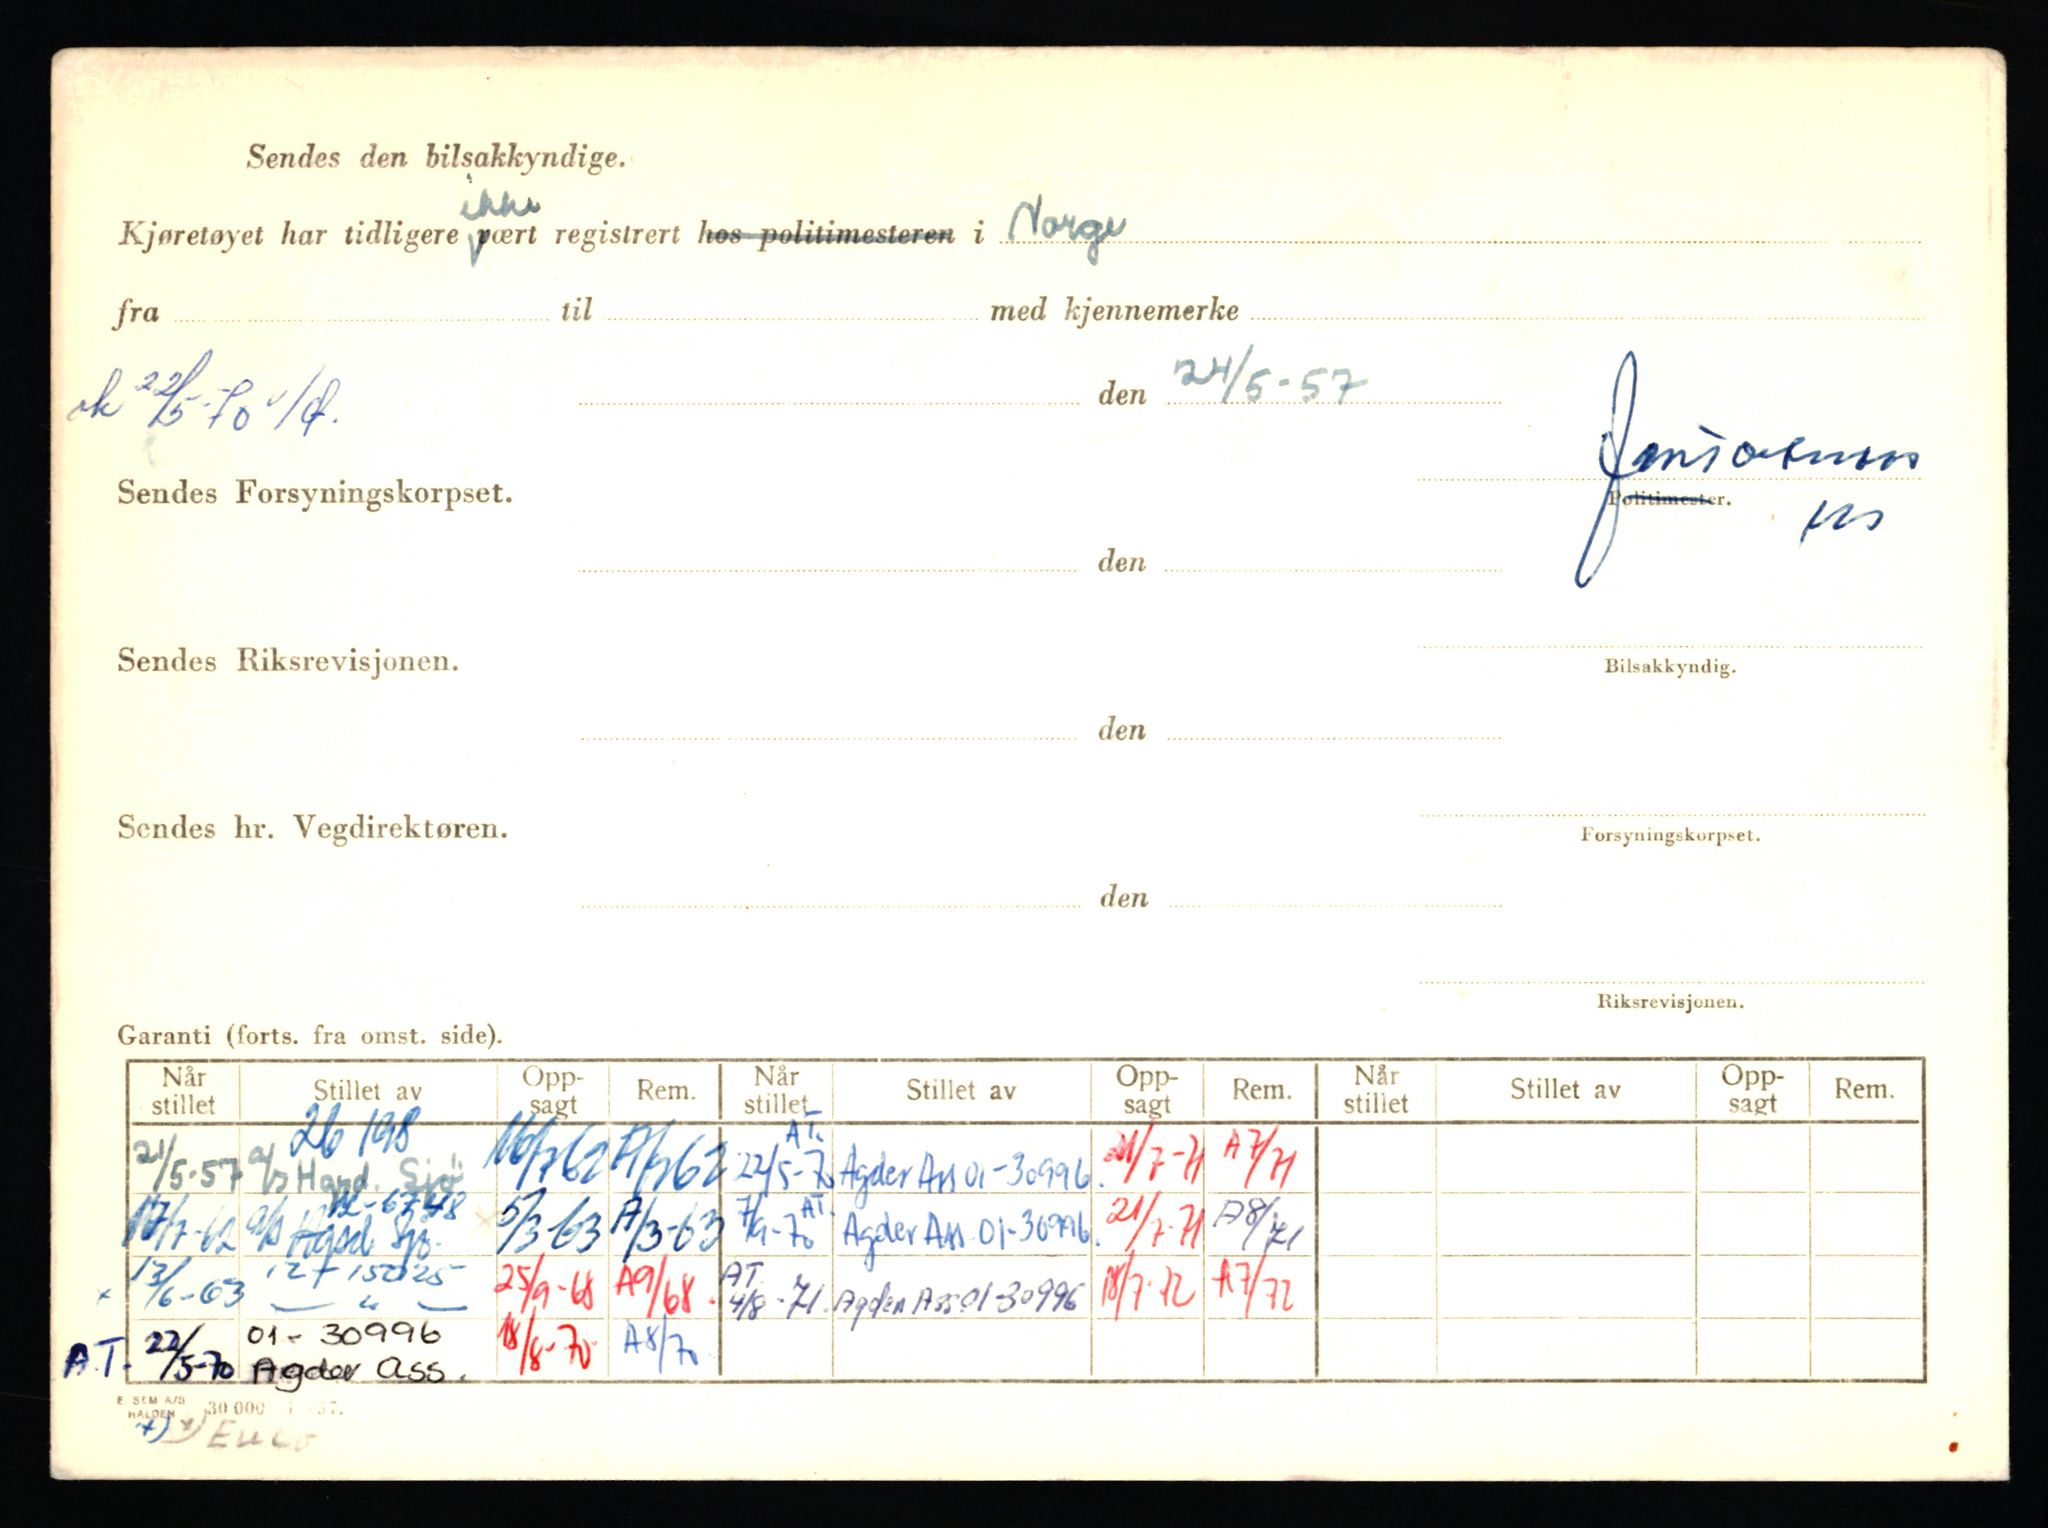 Sendes den bilsakkyndige.
ikke
Kjøretøyet har tidligere vært registrert hos politimesteren i Norge
fra til med kjennemerke
ok 22/5-70
den 24/5-57
Sendes Forsyningskorpset.
Politimester.
den
Sendes Riksrevisjonen.
Bilsakkyndig.
den
Sendes hr. Vegdirektøren.
Forsyningskorpset.
den
Riksrevisjonen.
Garanti (forts. fra omst. side).
Når stillet Stillet av Opp-sagt Rem. Når stillet Stillet av Opp-sagt Rem. Når stillet Stillet av Opp-sagt Rem.
26198 AT.
21/5-57 a/s Hand. Sjø 16/7 62 A/7 62 22/5-70 Agder Ass 01-30996. 21/7-71 A7/71
17/7-62 a/s Sjø. 5/3-63 A/3-63 7/9-70 AT. Agder Ass 01-30996. 21/7-71 A8/71
x 13/6-63 12 + 152025 — " — 25/9-68 A9/68. AT 4/8-71. Agder Ass 01-30996 18/7-72 A7/72
A.T. 22/5-70 01-30996 Agder Ass. 18/8-70 A8/70
E. SEM A/S HALDEN 30 000 57.
x)